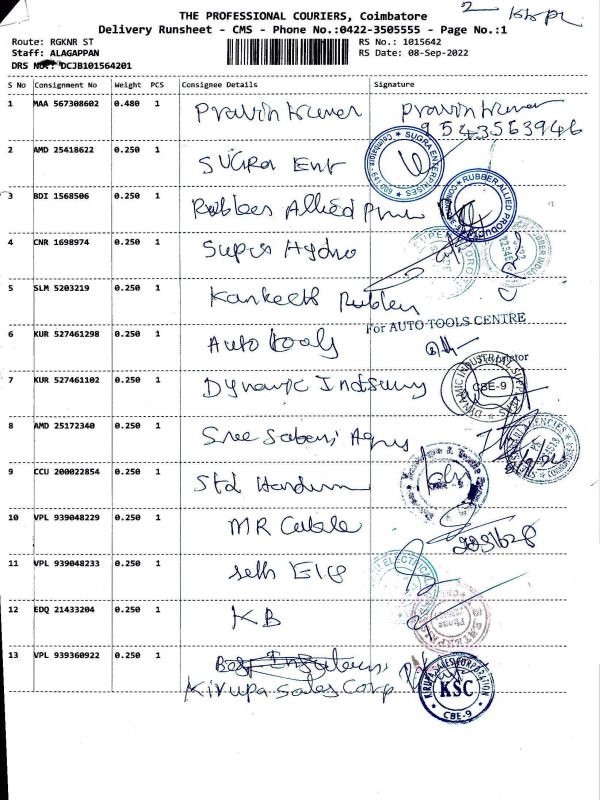 THE PROFESSIONAL COURIERS, Coimbatore
Delivery Runsheet - CMS - Phone No.:0422-3505555 - Page No.:1
Route: RGKNR ST
RS No.: 1015642
Staff: ALAGAPPAN
RS Date: 08-Sep-2022
DRS No.: DCJB101564201
S No Consignment No Weight PCS Consignee Details Signature
1 MAA 567308602 0.480 1 Pravin Kumar Pravin Kumar
9543563946
2 AMD 25418622 0.250 1 SUGRA Ent
SUGRA ENTERPRISES
3 BDI 1568506 0.250 1 Rubber Allied
RUBBER ALLIED PRODUCTS
4 CNR 1698974 0.250 1 Super Hydro
5 SLM 5203219 0.250 1 Rubber
For AUTO TOOLS CENTRE
6 KUR 527461298 0.250 1 Auto tools
Proprietor
7 KUR 527461102 0.250 1 Dynamic Industry
DYNAMIC INDUSTRIAL SUPPLIERS
CBE-9
8 AMD 25172340 0.250 1 Sree Sabari
9 CCU 200022854 0.250 1 Std
10 VPL 939048229 0.250 1 MR Cable
11 VPL 939048233 0.250 1 Seth
ELECTRICAL
12 EDQ 21433204 0.250 1 KB
13 VPL 939360922 0.250 1
Kirupa Sales Corp
KIRUPA SALES CORPORATION
KSC
CBE-9